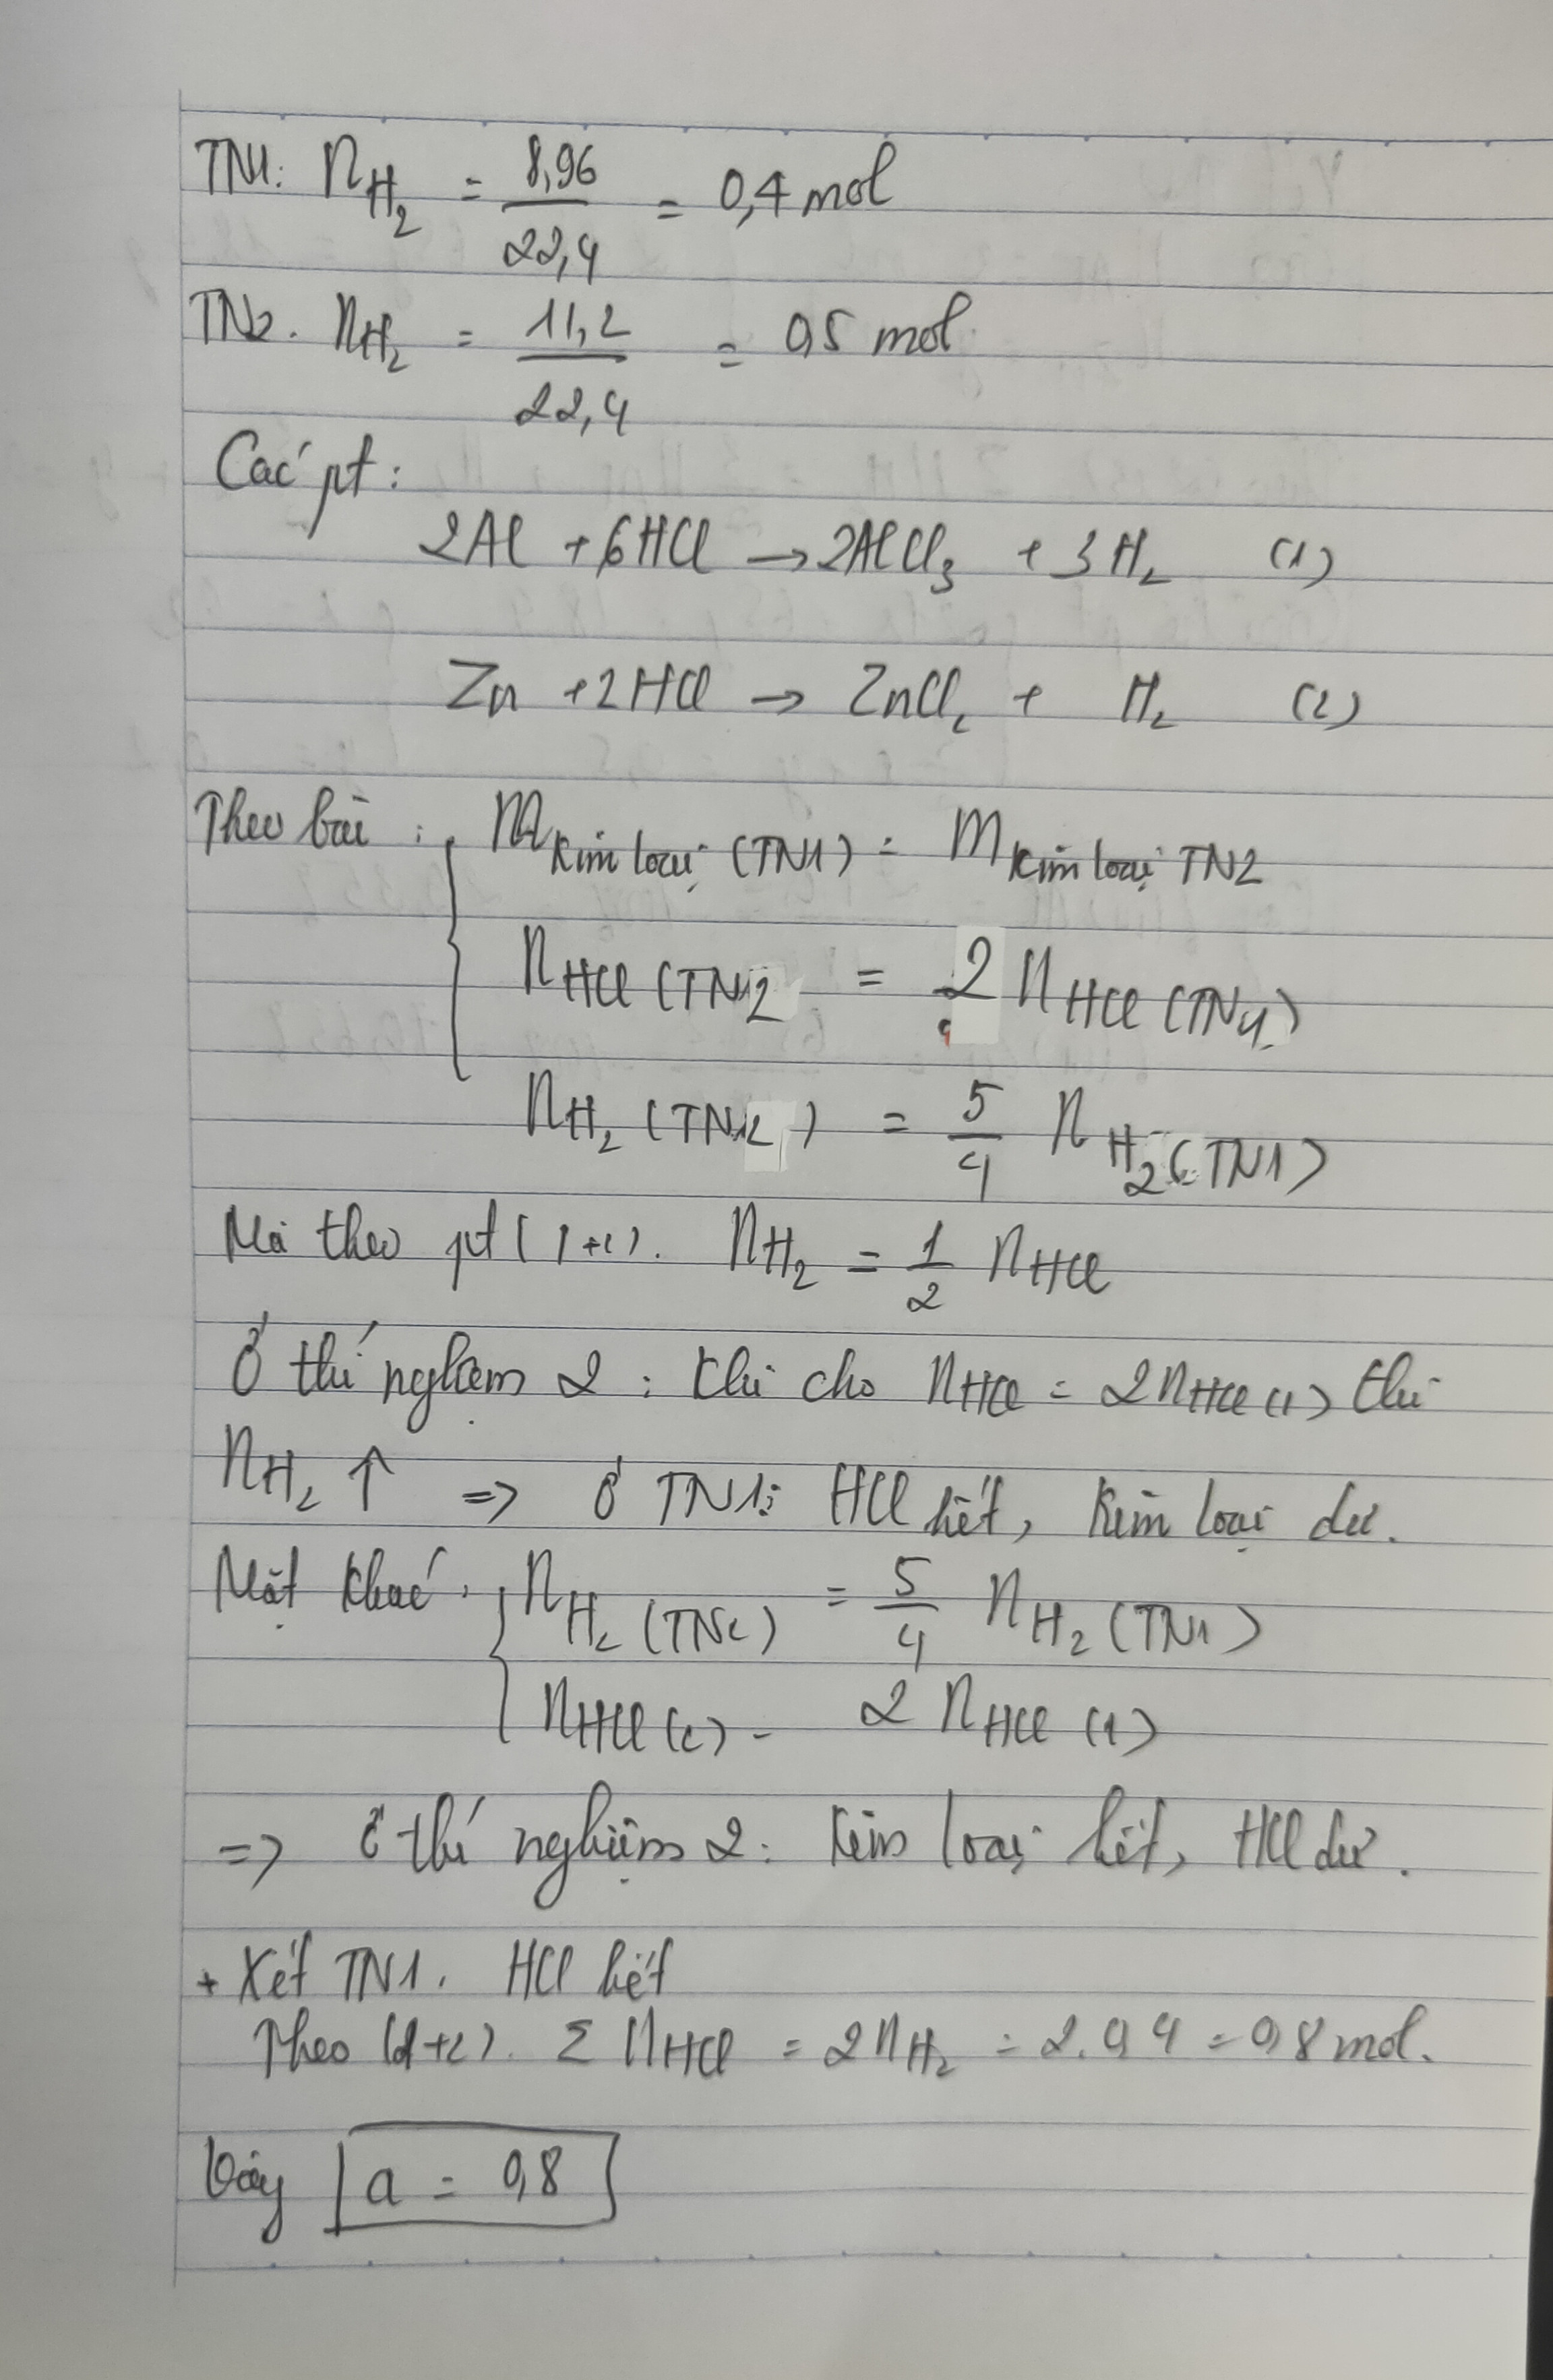 TN1: nH₂ = 8,96/22,4 = 0,4 mol
TN2. nH₂ = 11,2/22,4 = 0,5 mol
Các pt:
2Al + 6HCl → 2AlCl₃ + 3H₂ (1)
Zn + 2HCl → ZnCl₂ + H₂ (2)
Theo bài: m kim loại (TN1) = m kim loại TN2
nHCl (TN2 = 2 nHCl (TN1)
nH₂ (TN2) = 5/4 nH₂ (TN1)
Mà theo pt (1+2). nH₂ = 1/2 nHCl
Ở thí nghiệm 2: khi cho nHCl = 2nHCl (1) thì
nH₂ ↑ => ở TN1: HCl hết, kim loại dư.
Mặt khác: nH₂ (TN2) = 5/4 nH₂ (TN1)
nHCl (2) = 2 nHCl (1)
=> ở thí nghiệm 2: kim loại hết, HCl dư.
+ Xét TN1. HCl hết
Theo (1+2). Σ nHCl = 2nH₂ = 2.0,4 = 0,8 mol.
Vậy a = 0,8